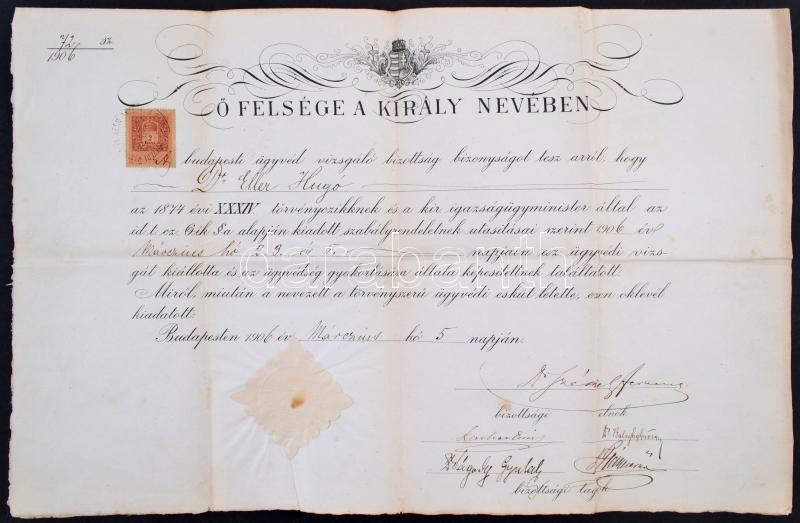 72 sz.
1906
Ő FELSÉGE A KIRÁLY NEVÉBEN
A budapesti ügyvéd vizsgáló bizottság bizonyságot tesz arról, hogy
Dr. Eller Hugó
az 1874 évi XXXIV. törvényczikknek és a kir. igazságügyminister által az
id. t. cz. 6ik §-a alapján kiadott szabályrendeletnek utasításai szerint 1906 év
Márczius hó 2. 3. és 5. napjain az ügyvédi vizs-
gát kiállotta és az ügyvédség gyakorlására általa képesítettnek találtatott.
Miről, miután a nevezett a törvényszerű ügyvédi esküt letette, ezen oklevél
kiadatott:
Budapesten 1906 év Márczius hó 5 napján.
Dr
bizottsági elnök
Dr Ságody Gyula
bizottsági tagok
darabanth.com